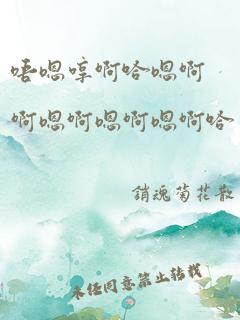 唔嗯哼啊哈嗯啊
啊嗯啊嗯啊嗯啊哈
銷魂菊花散
未经同意禁止转载